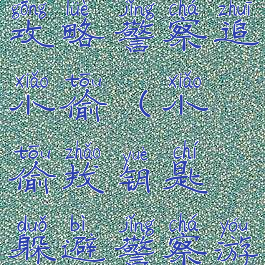 gōng lüè jǐng chá zhuī
攻略警察追
xiǎo tōu xiǎo
小偷(小
tōu zhǎo yuè chí
偷找钥匙
duǒ bì jǐng chá yóu
躲避警察游